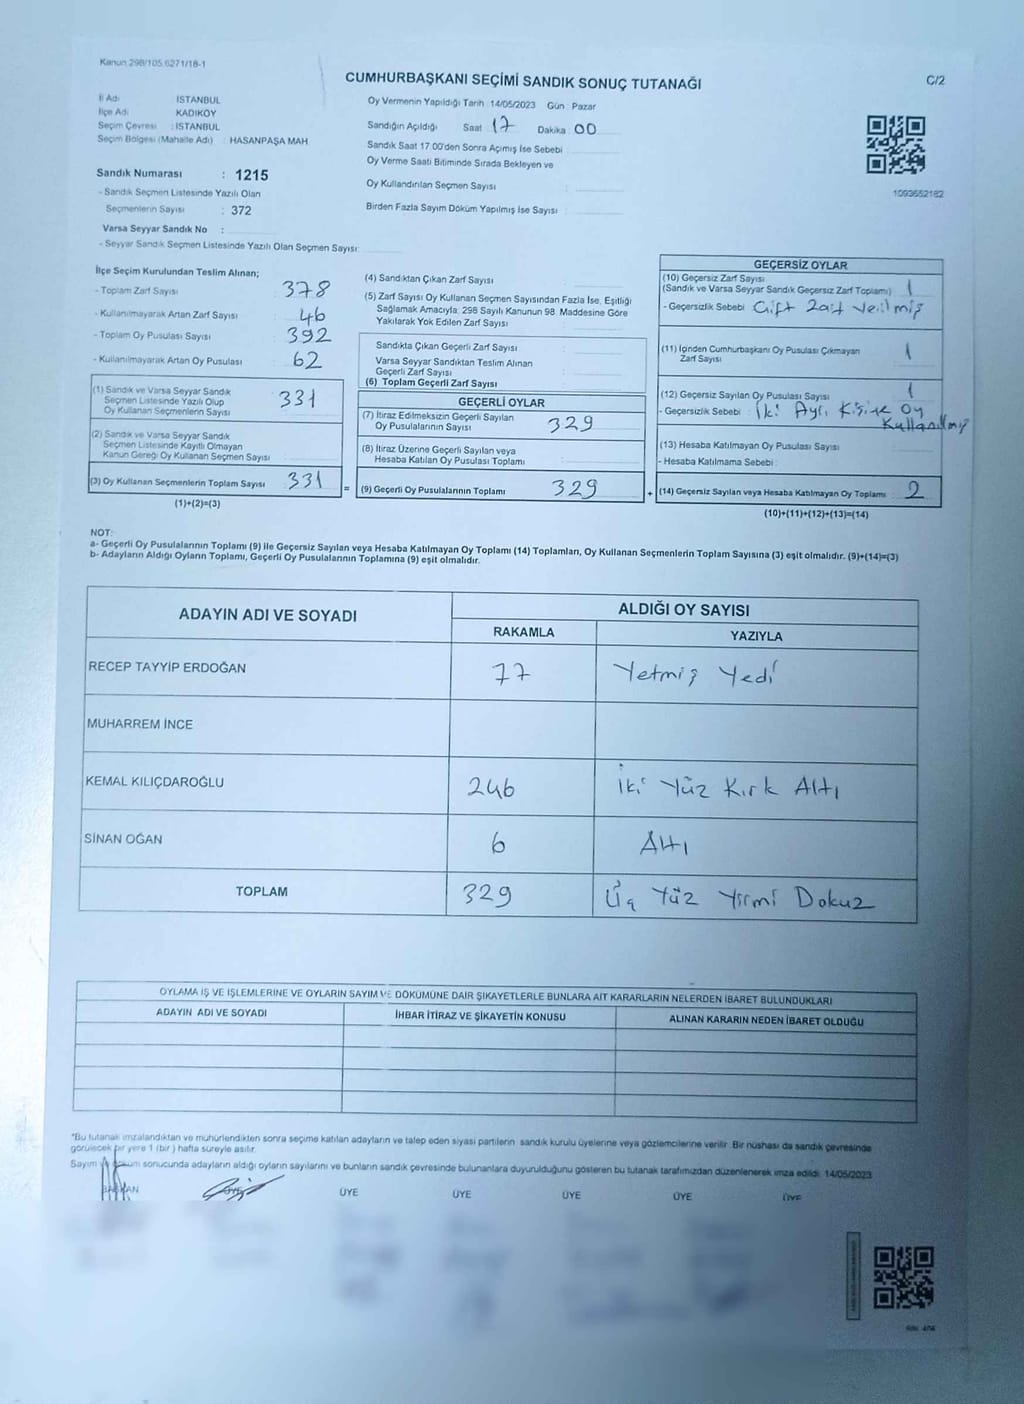 Kanun 298/105.6271/18-1
CUMHURBAŞKANI SEÇİMİ SANDIK SONUÇ TUTANAĞI
C/2
İl Adı : İSTANBUL
İlçe Adı : KADIKÖY
Seçim Çevresi : İSTANBUL
Seçim Bölgesi (Mahalle Adı) : HASANPAŞA MAH
Sandık Numarası : 1215
- Sandık Seçmen Listesinde Yazılı Olan
Seçmenlerin Sayısı : 372
Varsa Seyyar Sandık No :
- Seyyar Sandık Seçmen Listesinde Yazılı Olan Seçmen Sayısı:
Oy Vermenin Yapıldığı Tarih 14/05/2023 Gün : Pazar
Sandığın Açıldığı Saat : 17 Dakika : 00
Sandık Saat 17:00'den Sonra Açımış İse Sebebi :
Oy Verme Saati Bitiminde Sırada Bekleyen ve
Oy Kullandırılan Seçmen Sayısı :
Birden Fazla Sayım Döküm Yapılmış İse Sayısı :
1093652182
İlçe Seçim Kurulundan Teslim Alınan;
- Toplam Zarf Sayısı : 378
- Kullanılmayarak Artan Zarf Sayısı : 46
- Toplam Oy Pusulası Sayısı : 392
- Kullanılmayarak Artan Oy Pusulası : 62
(1) Sandık ve Varsa Seyyar Sandık
Seçmen Listesinde Yazılı Olup
Oy Kullanan Seçmenlerin Sayısı : 331
(2) Sandık ve Varsa Seyyar Sandık
Seçmen Listesinde Kayıtlı Olmayan
Kanun Gereği Oy Kullanan Seçmen Sayısı :
(3) Oy Kullanan Seçmenlerin Toplam Sayısı : 331
(1)+(2)=(3)
(4) Sandıktan Çıkan Zarf Sayısı :
(5) Zarf Sayısı Oy Kullanan Seçmen Sayısından Fazla İse, Eşitliği
Sağlamak Amacıyla; 298 Sayılı Kanunun 98. Maddesine Göre
Yakılarak Yok Edilen Zarf Sayısı :
Sandıkta Çıkan Geçerli Zarf Sayısı :
Varsa Seyyar Sandıktan Teslim Alınan
Geçerli Zarf Sayısı :
(6) Toplam Geçerli Zarf Sayısı :
GEÇERLİ OYLAR
(7) İtiraz Edilmeksizin Geçerli Sayılan
Oy Pusulalarının Sayısı : 329
(8) İtiraz Üzerine Geçerli Sayılan veya
Hesaba Katılan Oy Pusulası Toplamı :
= (9) Geçerli Oy Pusulalarının Toplamı : 329
GEÇERSİZ OYLAR
(10) Geçersiz Zarf Sayısı
(Sandık ve Varsa Seyyar Sandık Geçersiz Zarf Toplamı) 1
- Geçersizlik Sebebi : Çift Zarf Verilmiş
(11) İçinden Cumhurbaşkanı Oy Pusulası Çıkmayan
Zarf Sayısı : 1
(12) Geçersiz Sayılan Oy Pusulası Sayısı : 1
- Geçersizlik Sebebi : İki Ayrı Kişiye Oy
Kullanılmış
(13) Hesaba Katılmayan Oy Pusulası Sayısı :
- Hesaba Katılmama Sebebi :
+ (14) Geçersiz Sayılan veya Hesaba Katılmayan Oy Toplamı : 2
(10)+(11)+(12)+(13)=(14)
NOT:
a- Geçerli Oy Pusulalarının Toplamı (9) ile Geçersiz Sayılan veya Hesaba Katılmayan Oy Toplamı (14) Toplamları, Oy Kullanan Seçmenlerin Toplam Sayısına (3) eşit olmalıdır. (9)+(14)=(3)
b- Adayların Aldığı Oyların Toplamı, Geçerli Oy Pusulalarının Toplamına (9) eşit olmalıdır.
ADAYIN ADI VE SOYADI
ALDIĞI OY SAYISI
RAKAMLA YAZIYLA
RECEP TAYYİP ERDOĞAN 77 Yetmiş Yedi
MUHARREM İNCE
KEMAL KILIÇDAROĞLU 246 İki Yüz Kırk Altı
SİNAN OĞAN 6 Altı
TOPLAM 329 Üç Yüz Yirmi Dokuz
OYLAMA İŞ VE İŞLEMLERİNE VE OYLARIN SAYIM VE DÖKÜMÜNE DAİR ŞİKAYETLERLE BUNLARA AİT KARARLARIN NELERDEN İBARET BULUNDUKLARI
ADAYIN ADI VE SOYADI İHBAR İTİRAZ VE ŞİKAYETİN KONUSU ALINAN KARARIN NEDEN İBARET OLDUĞU
*Bu tutanak imzalandıktan ve mühürlendikten sonra seçime katılan adayların ve talep eden siyasi partilerin sandık kurulu üyelerine veya gözlemcilerine verilir. Bir nüshası da sandık çevresinde
görülecek bir yere 1 (bir) hafta süreyle asılır.
Sayım ve döküm sonucunda adayların aldığı oyların sayılarını ve bunların sandık çevresinde bulunanlara duyurulduğunu gösteren bu tutanak tarafımızdan düzenlenerek imza edildi. 14/05/2023
BAŞKAN ÜYE ÜYE ÜYE ÜYE ÜYE ÜYE